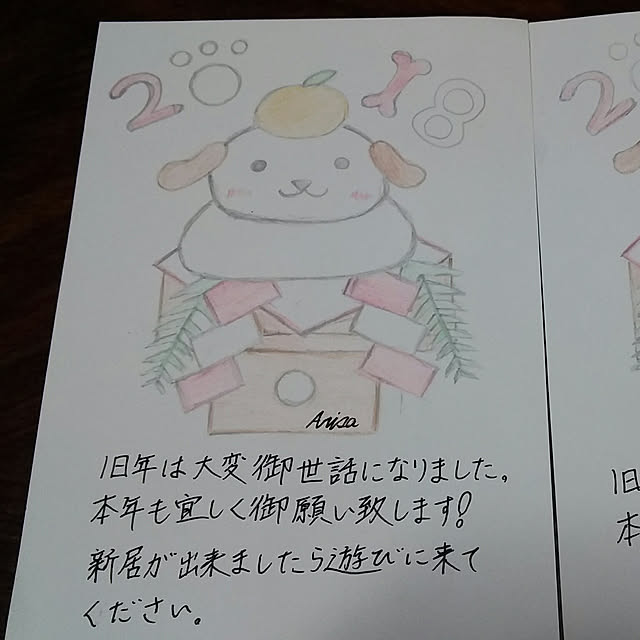 2018
Arisa
旧年は大変御世話になりました。
本年も宜しく御願い致します!
新居が出来ましたら遊びに来て
ください。
2
旧
本